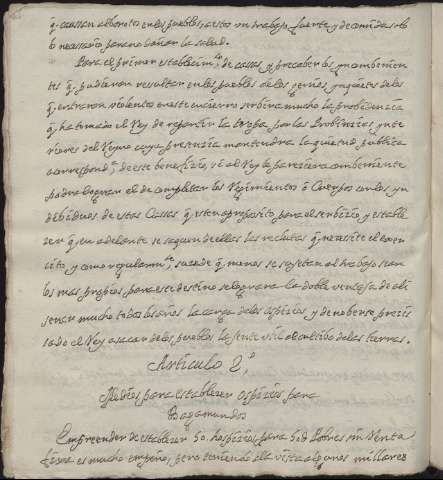 q. causan alborotos en los pueblos, a esto un trabajo fuerte y de comida solo
lo necesario para no dañar la salud.
Para el primer establecim.to de casas, y precaber los ynombenien
tes q. pudieran resultar en los pueblos de los genios ynquietos de los
q. entraron violentos en este encierro serbira mucho la probidencia
q. ha tomado el Rey de repartir la tropa por las Probincias ynte
riores del Reyno cuya presencia mantendra la quietud publica
correspond.te de este beneficio, si al Rey le pareciera combeniente
podra lograr el de completar los Regimientos ò Cuerpos con los yn
debiduos de estas Casas q. esten aproposito para el serbicio, y estable
zer q. en adelante se saquen de ellas las reclutas q. necesite el exer
cito, y como regularm.te sucede q. menos se sujetan al trabajo son
los mas propios para este destino se lograra la doble ventaja de ali
jerar mucho todos los años la carga de los ospicios, y de no berse preci
sado el Rey a sacar de los pueblos la jente util al cultibo de las tierras.
Articulo 2.º
Medios para establezer ospicios para
Bagamundos
Emprender de establezer 50. hospicios para 50 D Pobres sin Renta
fixa es mucho empeño, pero teniendo a la vista algunos millares